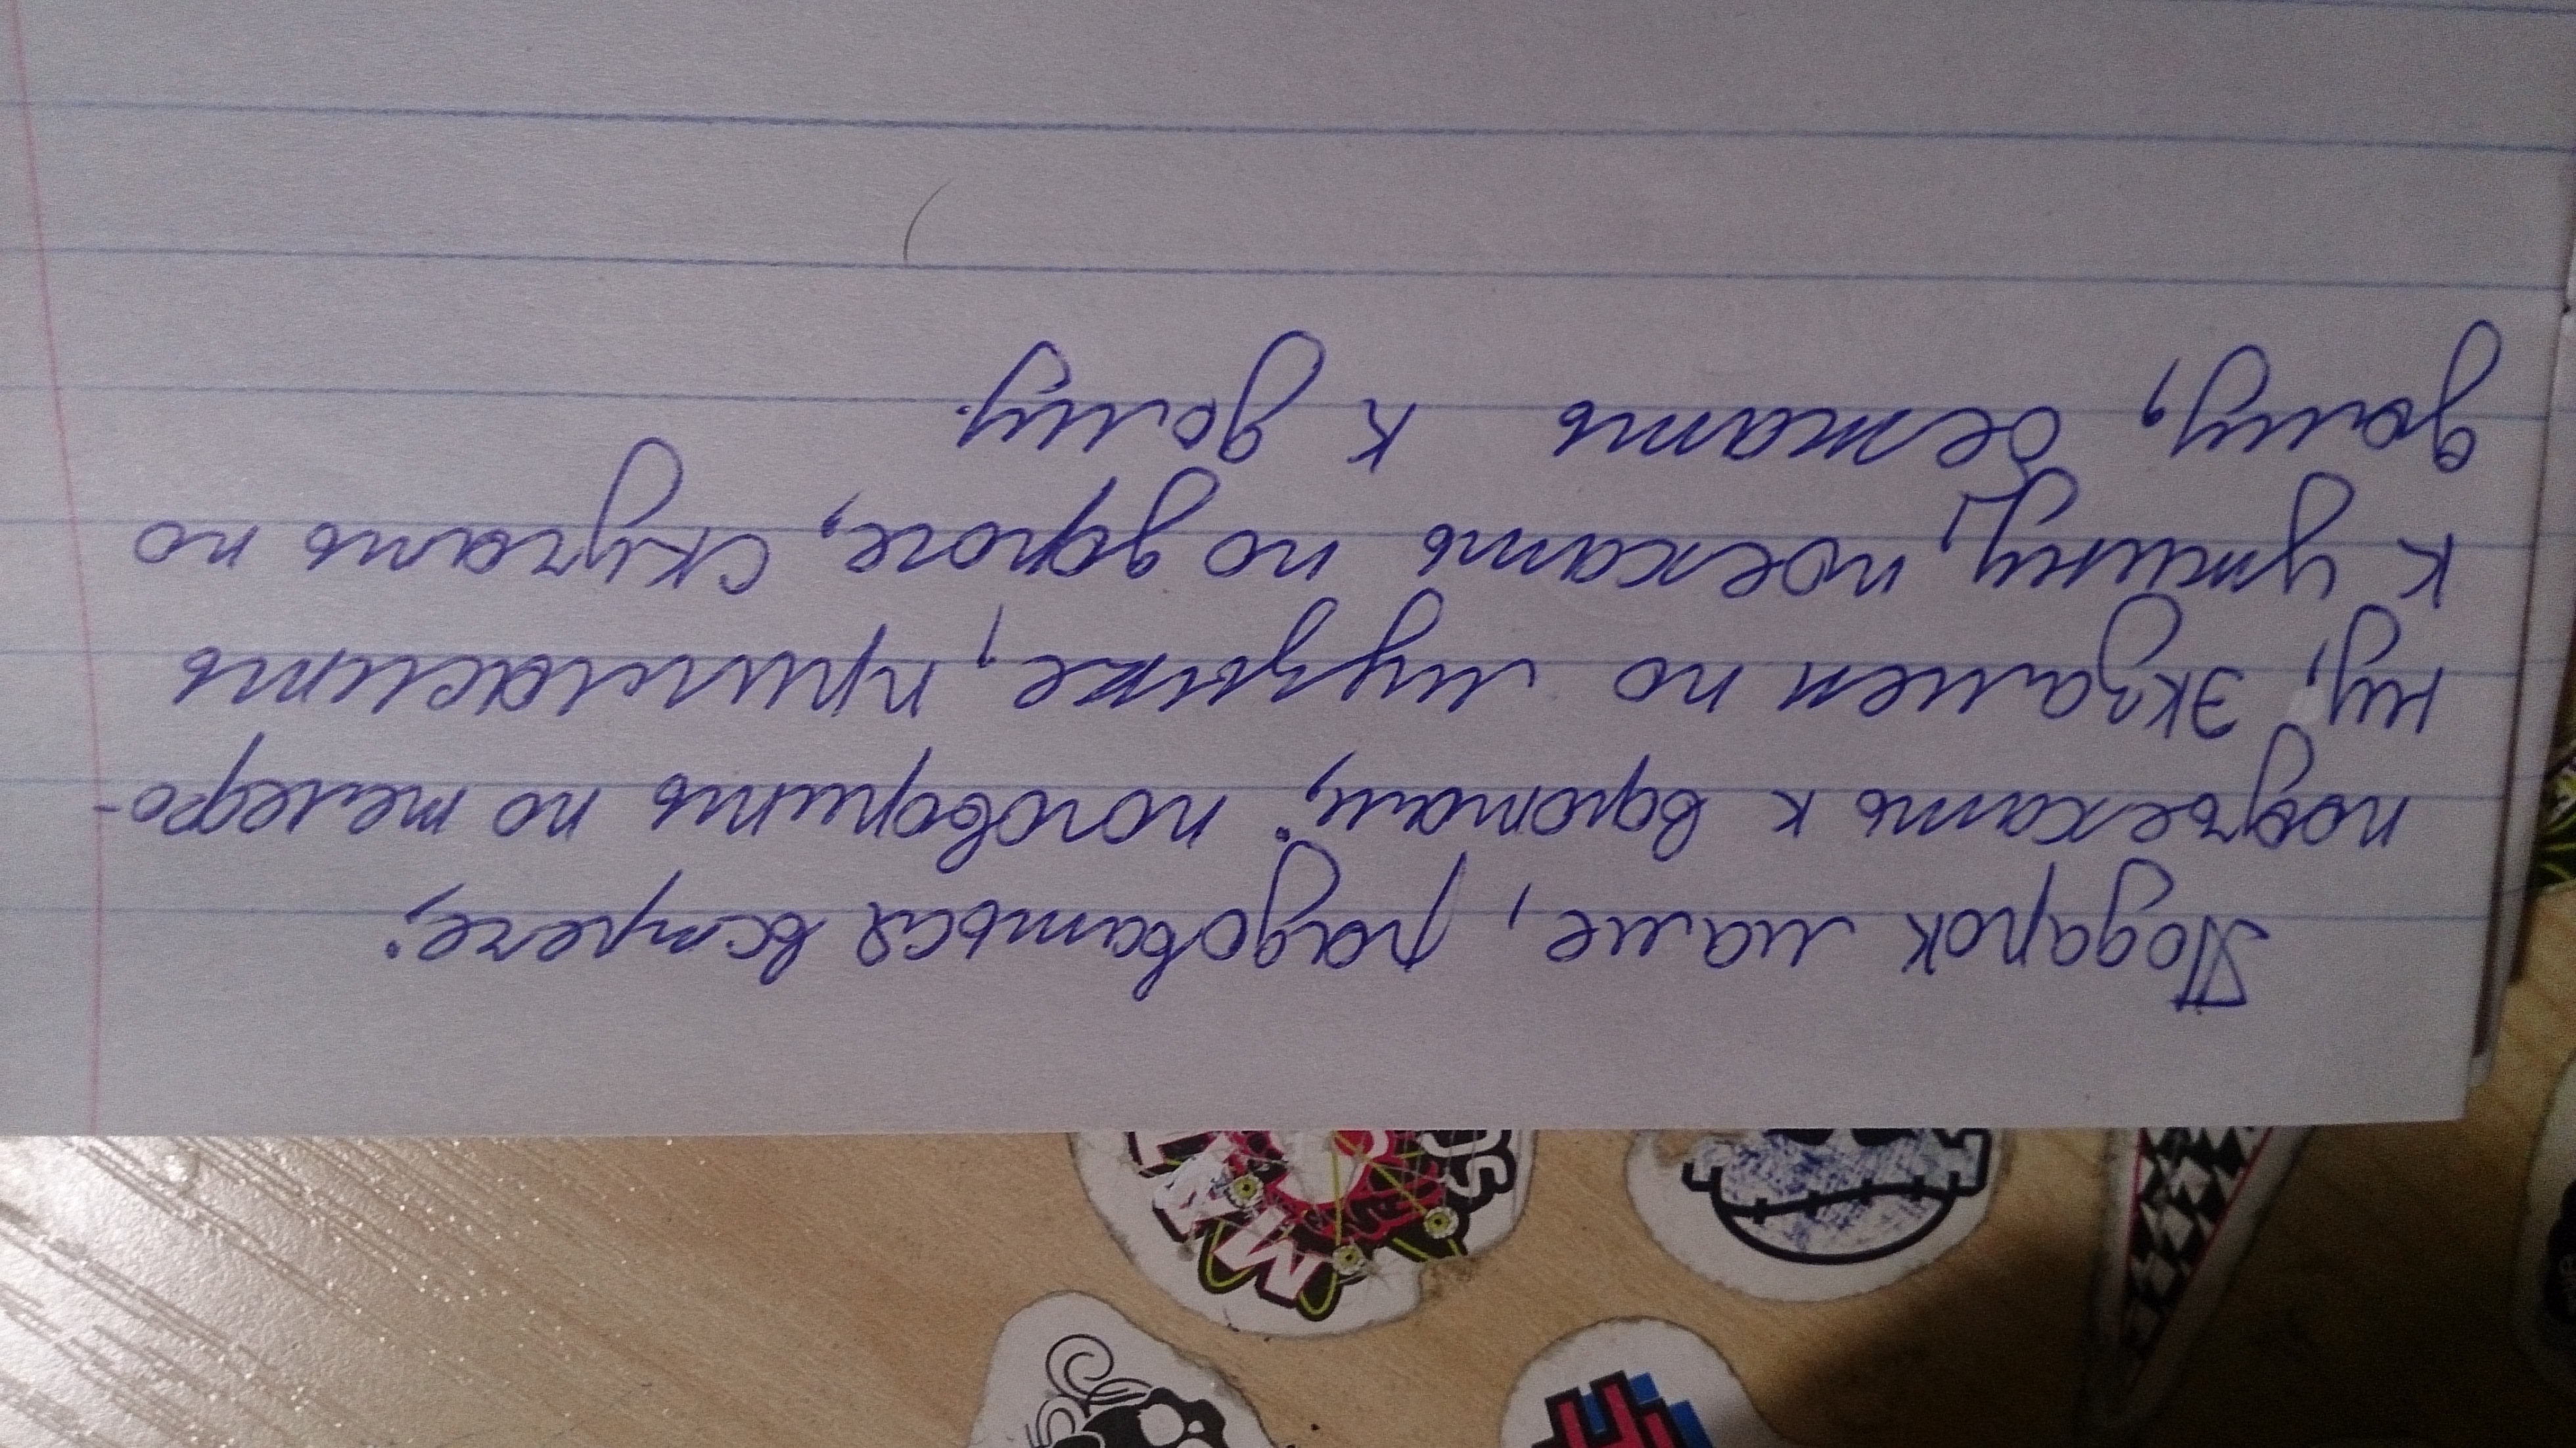 Подарок маме, радоваться встрече;
подъехать к воротам; поговорить по телефо-
ну, экзамен по музыке, пригласить
к ужину, поехать по дороге, скучать по
дому, бежать к дому.